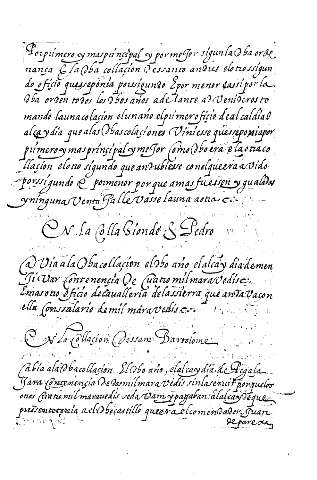 Por primero y mas principal y por mejor segun la dha orde
nança E la dha collaçion de santo andres el otro segun
do ofiçio que se ponia por segundo E por menor casi por la
dha orden todos los dhos años adelante
mando la una colaçion el un año el primer ofiçio de alcaldia
alcaydia que a las dhas colaçiones viniese que se ponia por
primero y mas principal y mejor como dho era E la otra co
llaçion el otro segundo que andubiese con el que era avido
por segundo E por menor porque a mas fuesen ygualadas
y ninguna ventaja llevase la una a otra
En la Collaçion de S Pedro
avia a la dha collaçion el dho año el alcaydia de men
givar con tenençia de cuatro mill maravedis
E mas otro ofiçio de cavalleria de la sierra que andava con
ella con salario de mill maravedis
En la Collaçion de San Bartolome
Cabia a la dha collaçion El dho año, el alcaydia de Pegala
jara con tenençia de mill maravedis
ones maravedis se davan y pagavan al alcayde que
presente a el dho castillo que era el comendador Juan
de pareja